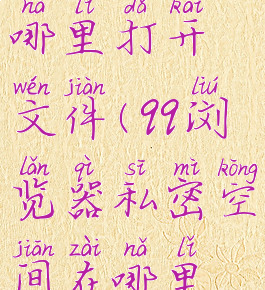 nǎ lǐ dǎ kāi
哪里打开
wén jiàn liú
文件(99浏
lǎn qì sī mì kōng
览器私密空
jiān zài nǎ lǐ
间在哪里